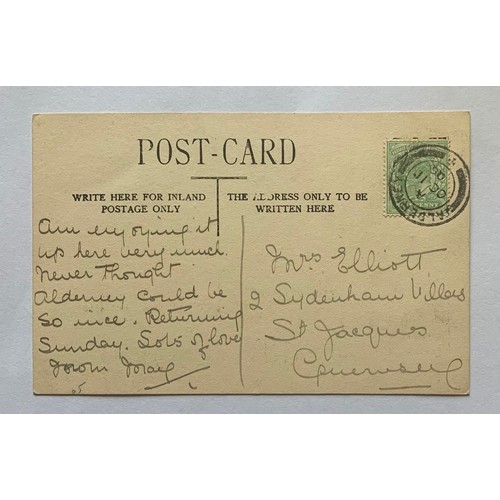 POST-CARD
WRITE HERE FOR INLAND
POSTAGE ONLY
THE ADDRESS ONLY TO BE
WRITTEN HERE
Am enjoying it
up here very much.
Never thought
Alderney could be
so nice. Returning
Sunday. Lots of love
from May
Mrs Elliott
2 Sydenham Villas
St Jacques
Guernsey
ALDERNEY